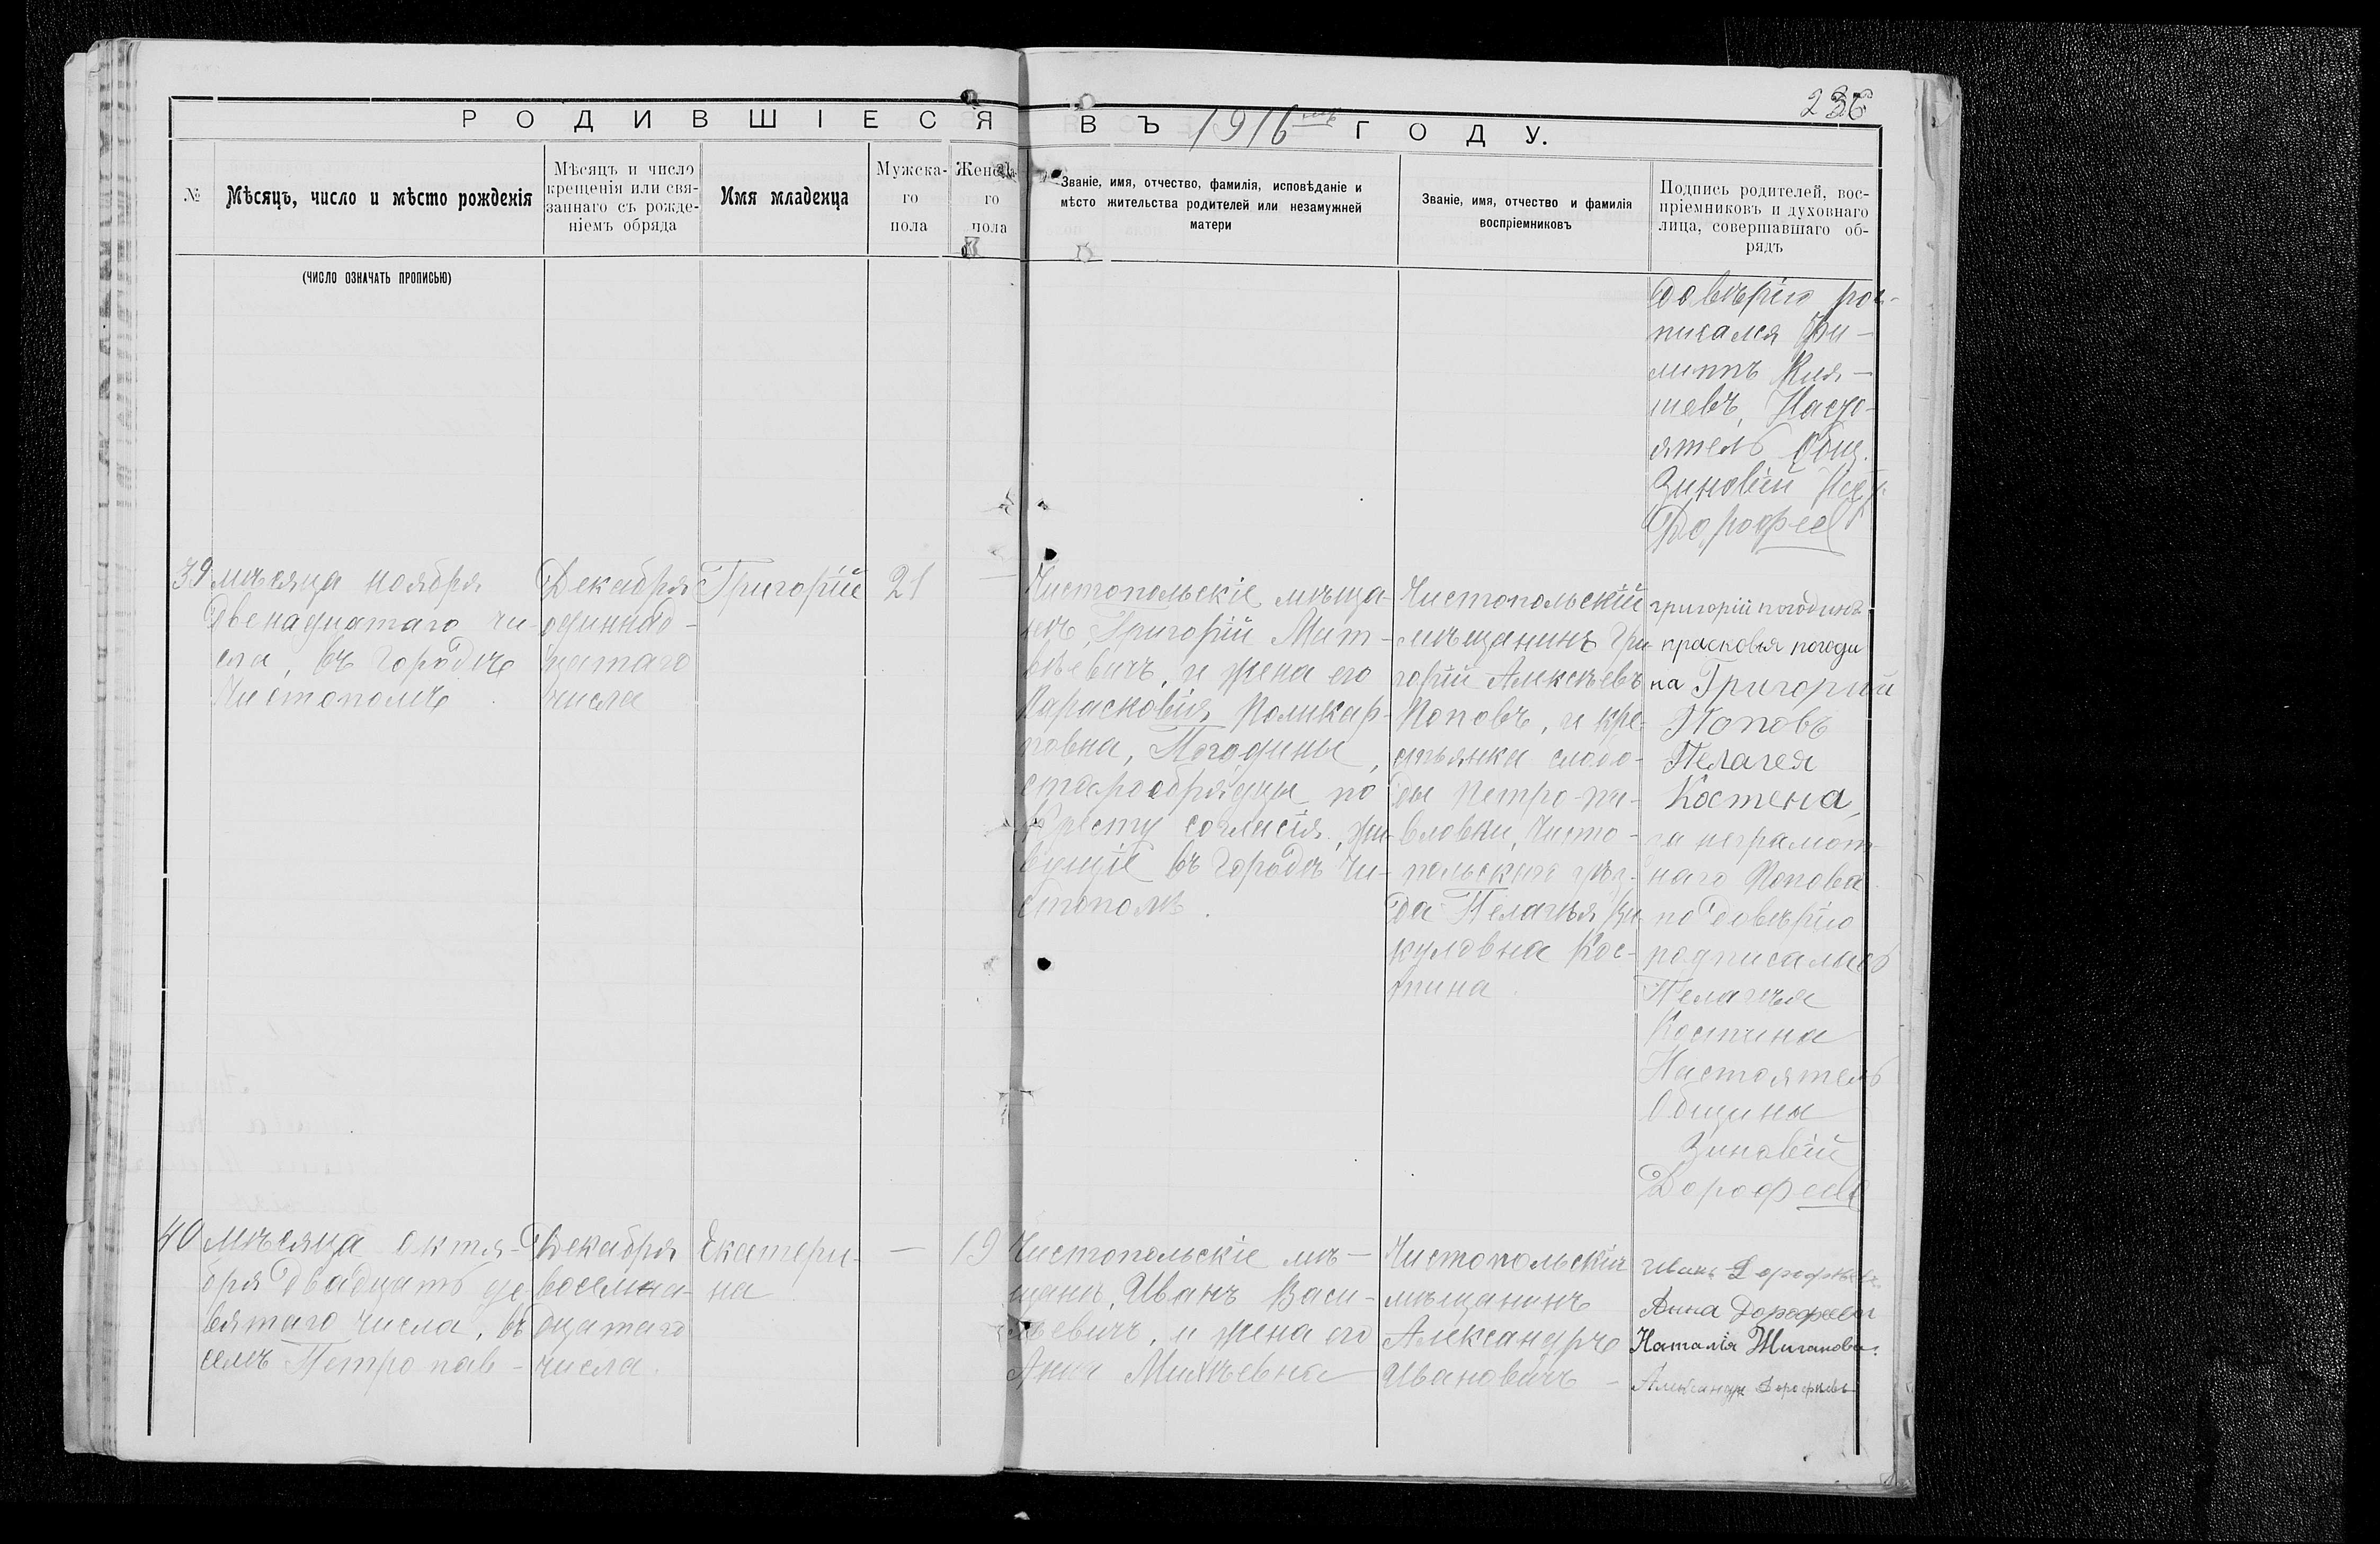 236
РОДИВШІЕСЯ ВЪ 1916мъ ГОДУ.
№
Мѣсяцъ, число и мѣсто рожденія
Мѣсяцъ и число
крещенія или свя-
заннаго съ рожде-
ніемъ обряда
Имя младенца
Мужска-
го
пола
Женска-
го
пола
Званіе, имя, отчество, фамилія, исповѣданіе и
мѣсто жительства родителей или незамужней
матери
Званіе, имя, отчество и фамилія
воспріемниковъ
Подпись родителей, вос-
пріемниковъ и духовнаго
лица, совершавшаго об-
рядъ
(ЧИСЛО ОЗНАЧАТЬ ПРОПИСЬЮ)
довѣрію рос-
писался Фи-
липпъ
Насто-
ятель Общ.
Зиновій
Дорофеев
39
мѣсяца ноября
двенадцатаго чи-
сла, въ городѣ
Чистополѣ
Декабря
одиннад-
цатаго
числа
Григорій
21
—
Чистопольскіе мѣща-
не, Григорій Мат-
вѣевичъ, и жена его
Парасковія Поликар-
повна, Погодины,
старообрядцы по
Кресту согласія, жи-
вущіе въ городѣ Чи-
стополѣ.
Чистопольскій
мѣщанинъ Гри-
горій Алексѣевъ
Поповъ, и кре-
стьянка слобо-
ды Петро-па-
вловки, Чисто-
польскаго уѣз-
да Пелагѣя Ви-
куловна Кос-
тина.
григорій погодинъ
прасковья погоди
на Григорий
Поповъ
Пелагея
Костена,
за неграмот-
наго Попова
по довѣрію
подписалась
Пелагѣя
Костина
Настоятель
Общины
Зиновій
Дорофеев
40
мѣсяца октя-
бря двадцать де-
вятаго числа, въ
селѣ Петропав-
Декабря
восемна-
дцатаго
числа.
Екатери-
на
—
19
Чистопольскіе мѣ-
щане, Иванъ Васи-
льевичъ, и жена его
Анна Михѣевна
Чистопольскій
мѣщанинъ
Александръ
Ивановичъ -
Иванъ Дорофѣевъ
Анна Дорофеева
Наталія Жиганова.
Александръ Дорофѣевъ